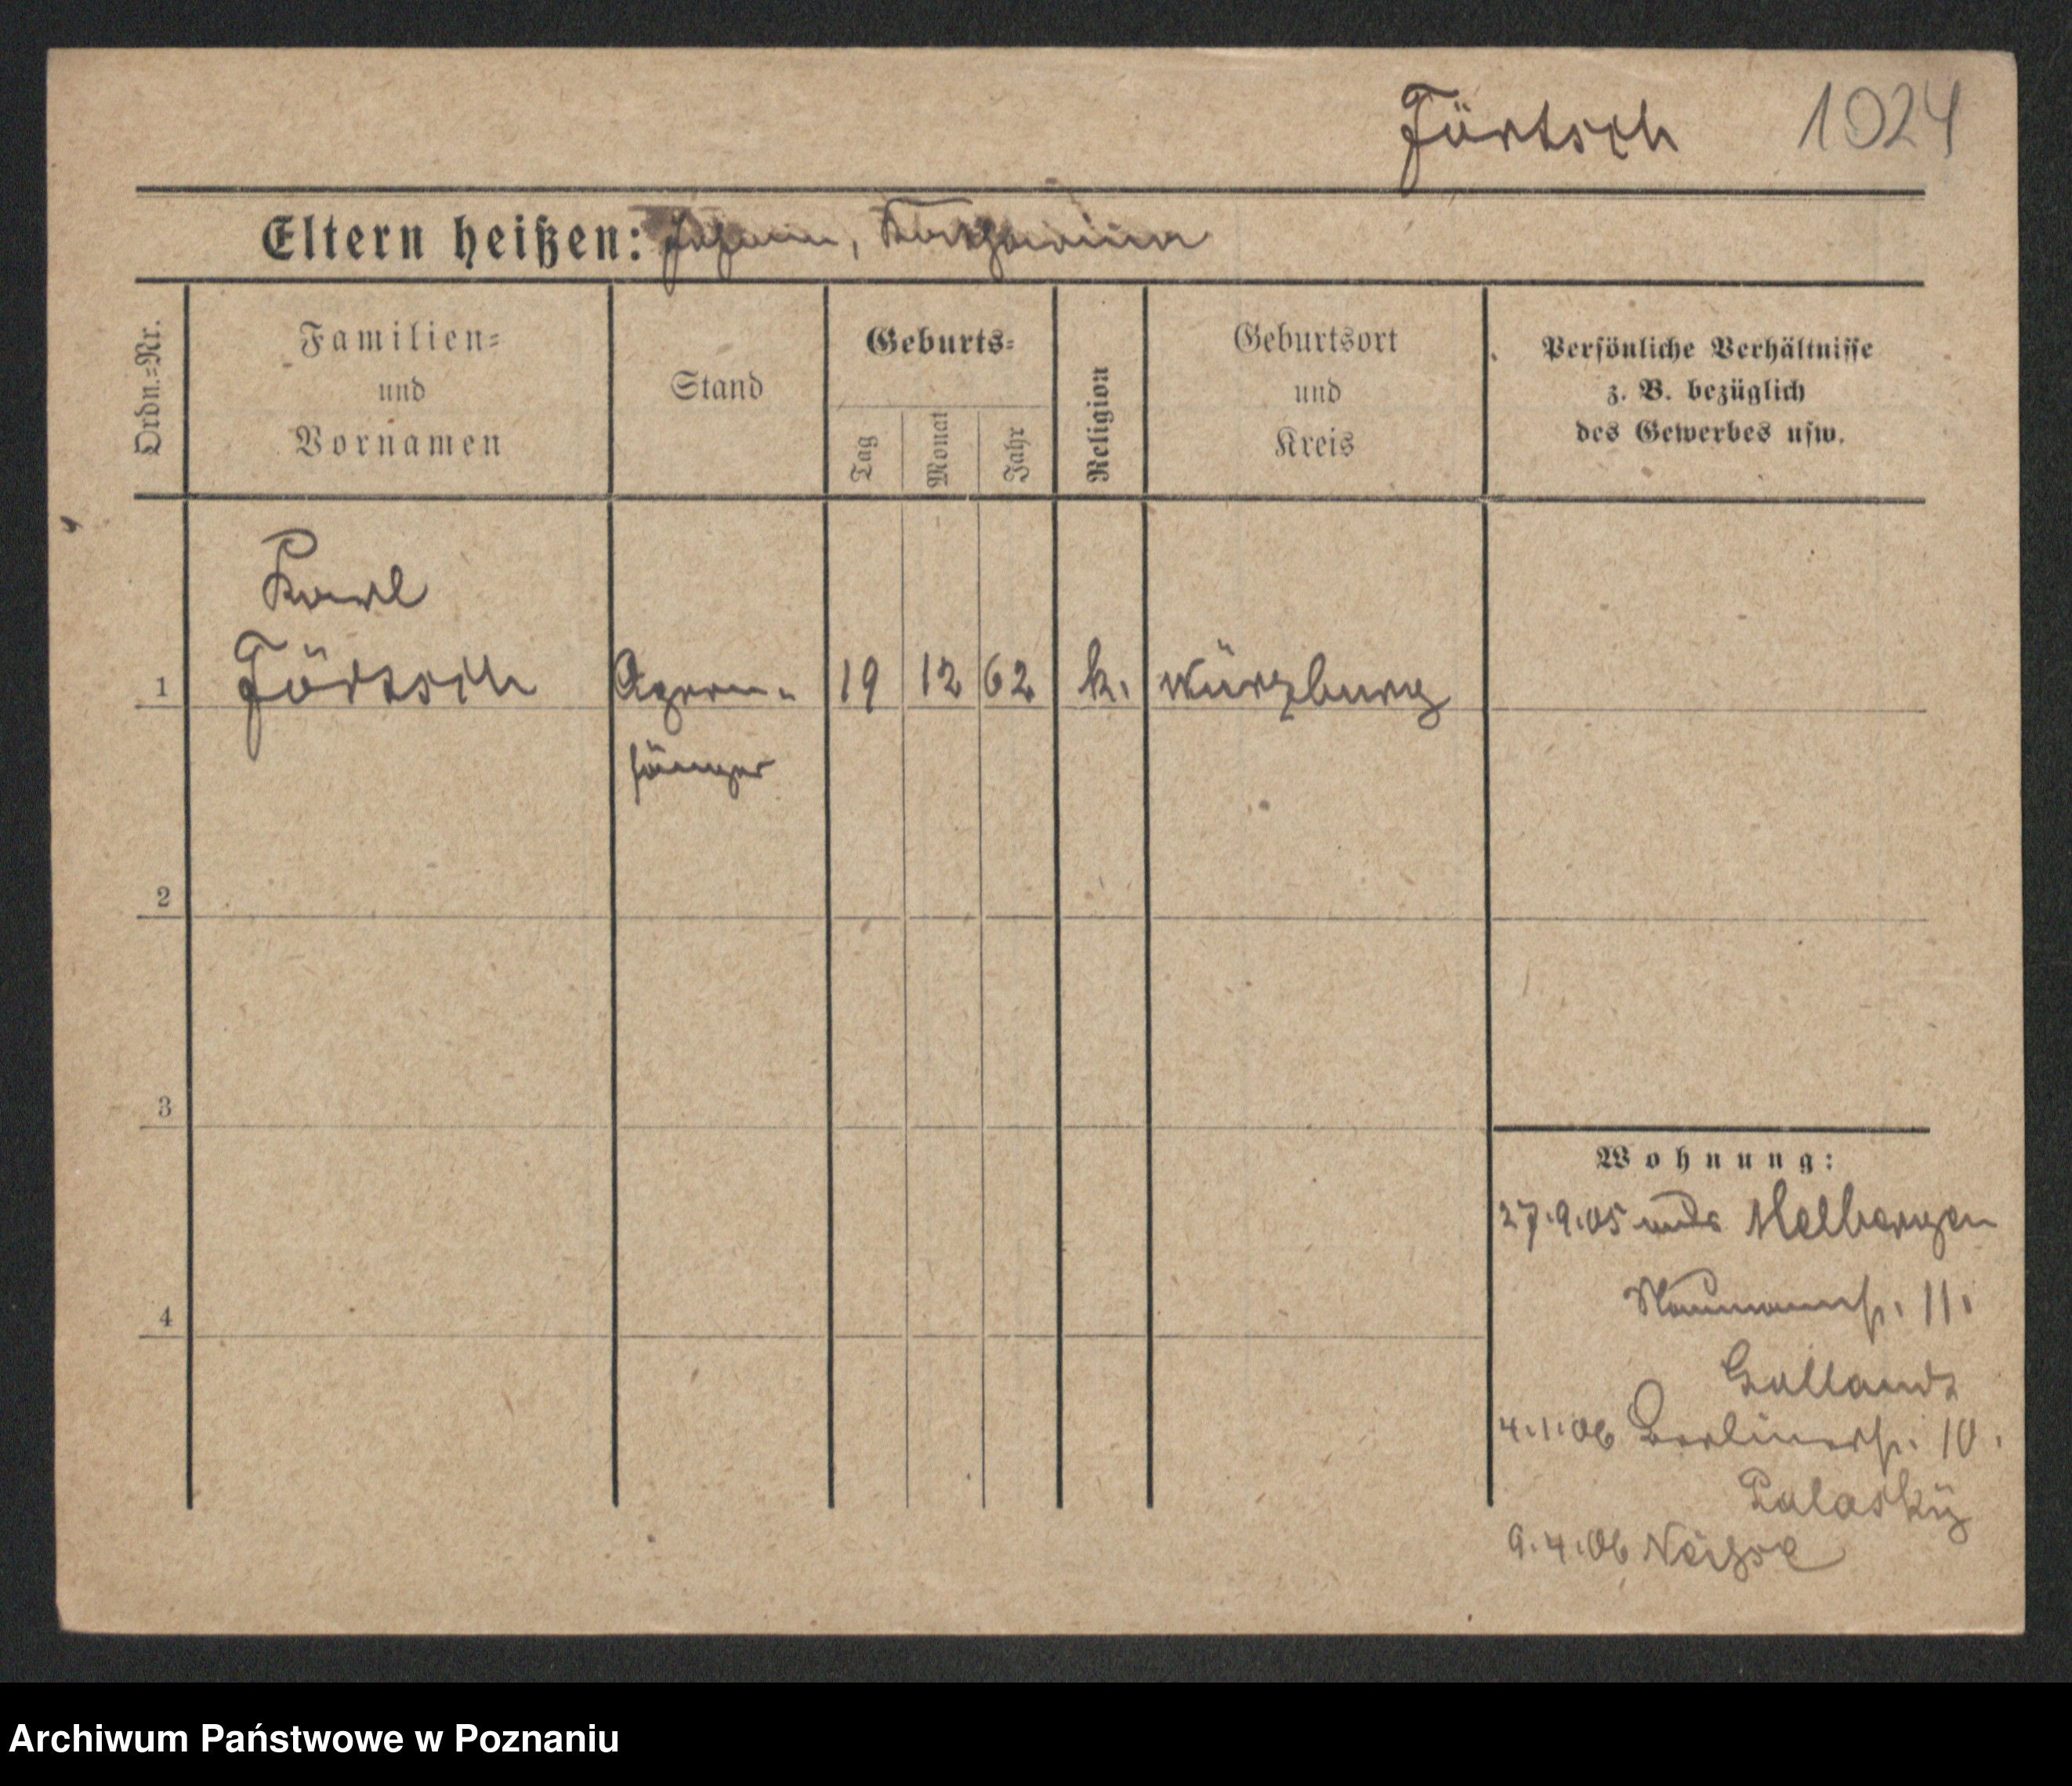 Förtsch 1024
Eltern heißen: Johann, Katharina
Ordn.=Nr.
Familien=
und
Vornamen
Stand
Geburts=
Tag
Monat
Jahr
Religion
Geburtsort
und
Kreis
Persönliche Verhältnisse
z. B. bezüglich
des Gewerbes usw.
Karl
1 Förtsch Opern- 19 12 62 k. Würzburg
sänger
2
3
4
Wohnung:
27.9.05 Melbergen
Naumannstr. 11.
4.1.06 Berlinerstr. 10.
9.4.06 Neisse
Archiwum Państwowe w Poznaniu